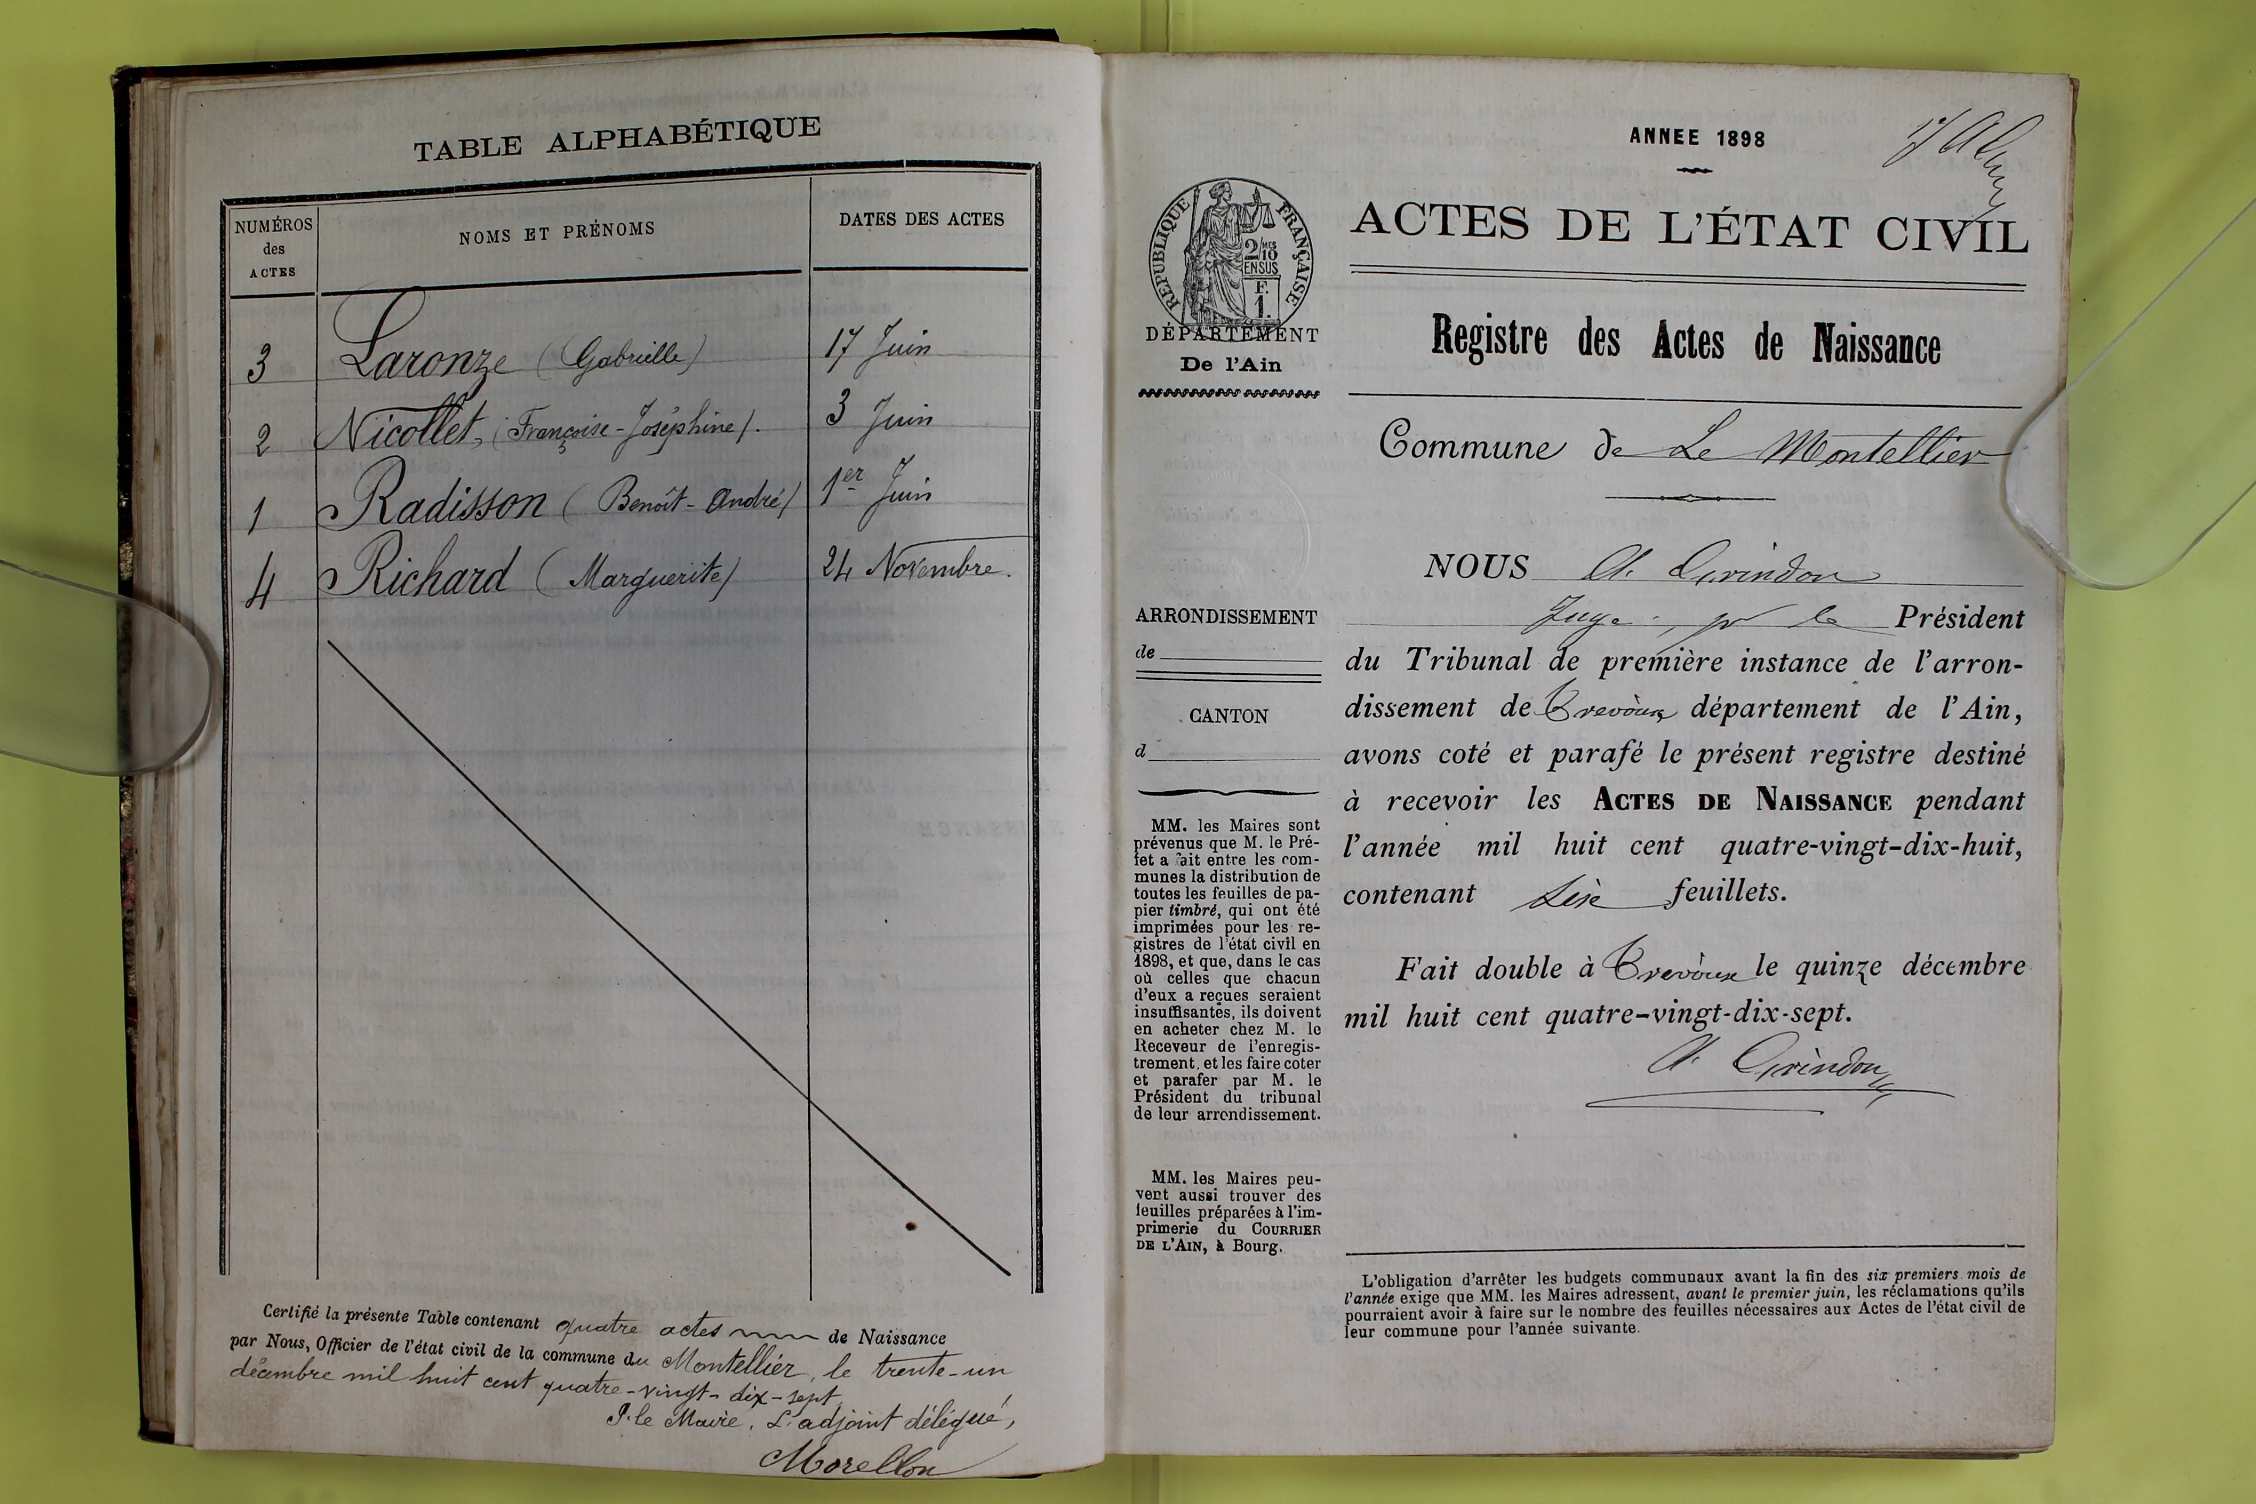 TABLE ALPHABÉTIQUE
NUMÉROS
des
ACTES
NOMS ET PRÉNOMS
DATES DES ACTES
3 Laronze (Gabrielle) 17 Juin
2 Nicollet, (Françoise-Joséphine). 3 Juin
1 Radisson (Benoît-André) 1er Juin
4 Richard (Marguerite) 24 Novembre.
Certifié la présente Table contenant quatre actes de Naissance
par Nous, Officier de l'état civil de la commune du Montellier, le trente-un
décembre mil huit cent quatre-vingt-dix-sept
P. le Maire, L'adjoint délégué,
Morellon
ANNEE 1898
ACTES DE L'ÉTAT CIVIL
RÉPUBLIQUE FRANÇAISE
2/10 MES
EN SUS
F.
1.
DÉPARTEMENT
De l'Ain
Registre des Actes de Naissance
Commune de Le Montellier
NOUS A. Girindon
Juge, pr le Président
du Tribunal de première instance de l'arron-
dissement de Trevoux département de l'Ain,
avons coté et parafé le présent registre destiné
à recevoir les ACTES DE NAISSANCE pendant
l'année mil huit cent quatre-vingt-dix-huit,
contenant six feuillets.
Fait double à Trevoux le quinze décembre
mil huit cent quatre-vingt-dix-sept.
A. Girindon
ARRONDISSEMENT
de
CANTON
d
MM. les Maires sont
prévenus que M. le Pré-
fet a fait entre les com-
munes la distribution de
toutes les feuilles de pa-
pier timbré, qui ont été
imprimées pour les re-
gistres de l'état civil en
1898, et que, dans le cas
où celles que chacun
d'eux a reçues seraient
insuffisantes, ils doivent
en acheter chez M. le
Receveur de l'enregis-
trement, et les faire coter
et parafer par M. le
Président du tribunal
de leur arrondissement.
MM. les Maires peu-
vent aussi trouver des
feuilles préparées à l'im-
primerie du COURRIER
DE L'AIN, à Bourg.
L'obligation d'arrêter les budgets communaux avant la fin des six premiers mois de
l'année exige que MM. les Maires adressent, avant le premier juin, les réclamations qu'ils
pourraient avoir à faire sur le nombre des feuilles nécessaires aux Actes de l'état civil de
leur commune pour l'année suivante.